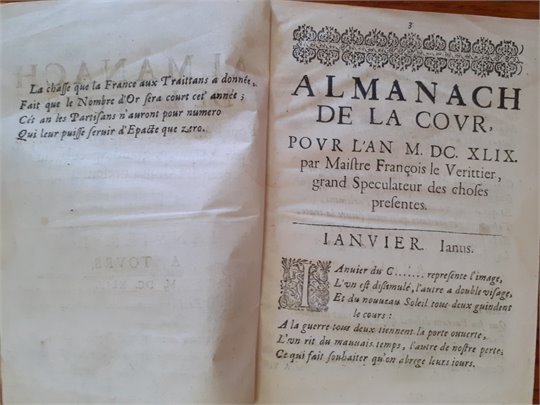 La chasse que la France aux Traittans a donnée,
Fait que le Nombre d'Or sera court cet' année ;
Cés an les Partisans n'auront pour numero
Qui leur puisse seruir d'Epacte que zero.
3
ALMANACH
DE LA COVR,
POVR L'AN M. DC. XLIX.
par Maistre François le Verittier,
grand Speculateur des choses
presentes.
IANVIER. Ianus.
IAnuier du C...... represente l'image,
L'vn est dissimulé, l'autre a double visage,
Et du nouueau Soleil tous deux guindent
le cours :
A la guerre tous deux tiennent la porte ouuerte,
L'vn rit du mauuais temps, l'autre de nostre perte;
Ce qui fait souhaiter qu'on abrege leurs iours.
ALMANACH
A TOVRS